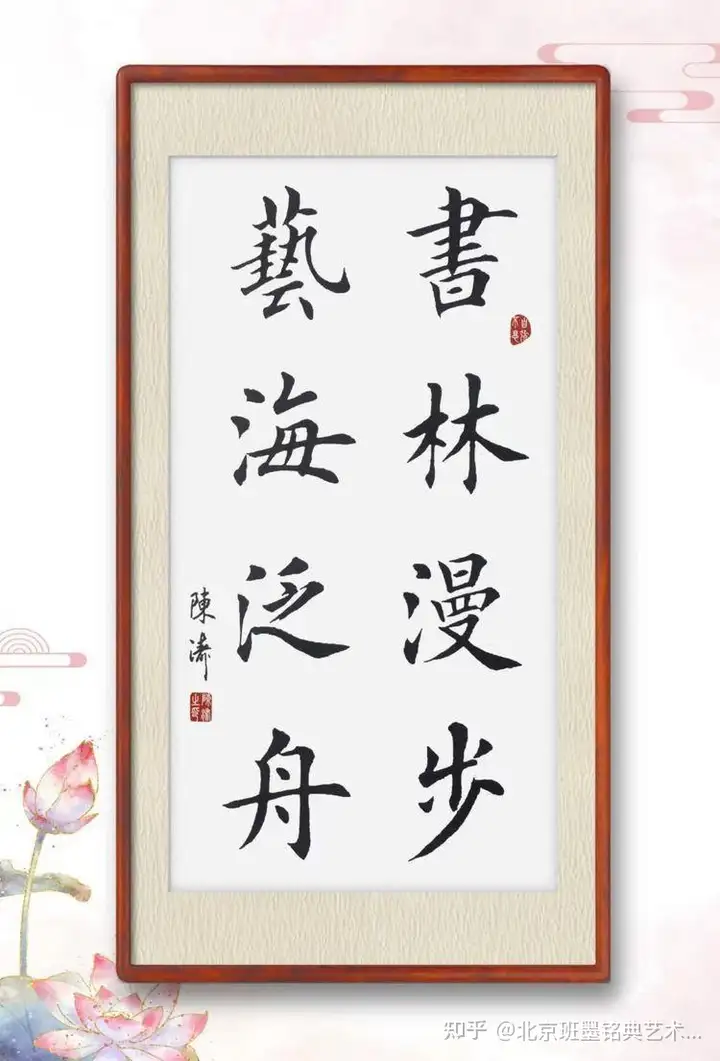 書林漫步
藝海泛舟
陳濤
知乎 @北京班墨铭典艺术...